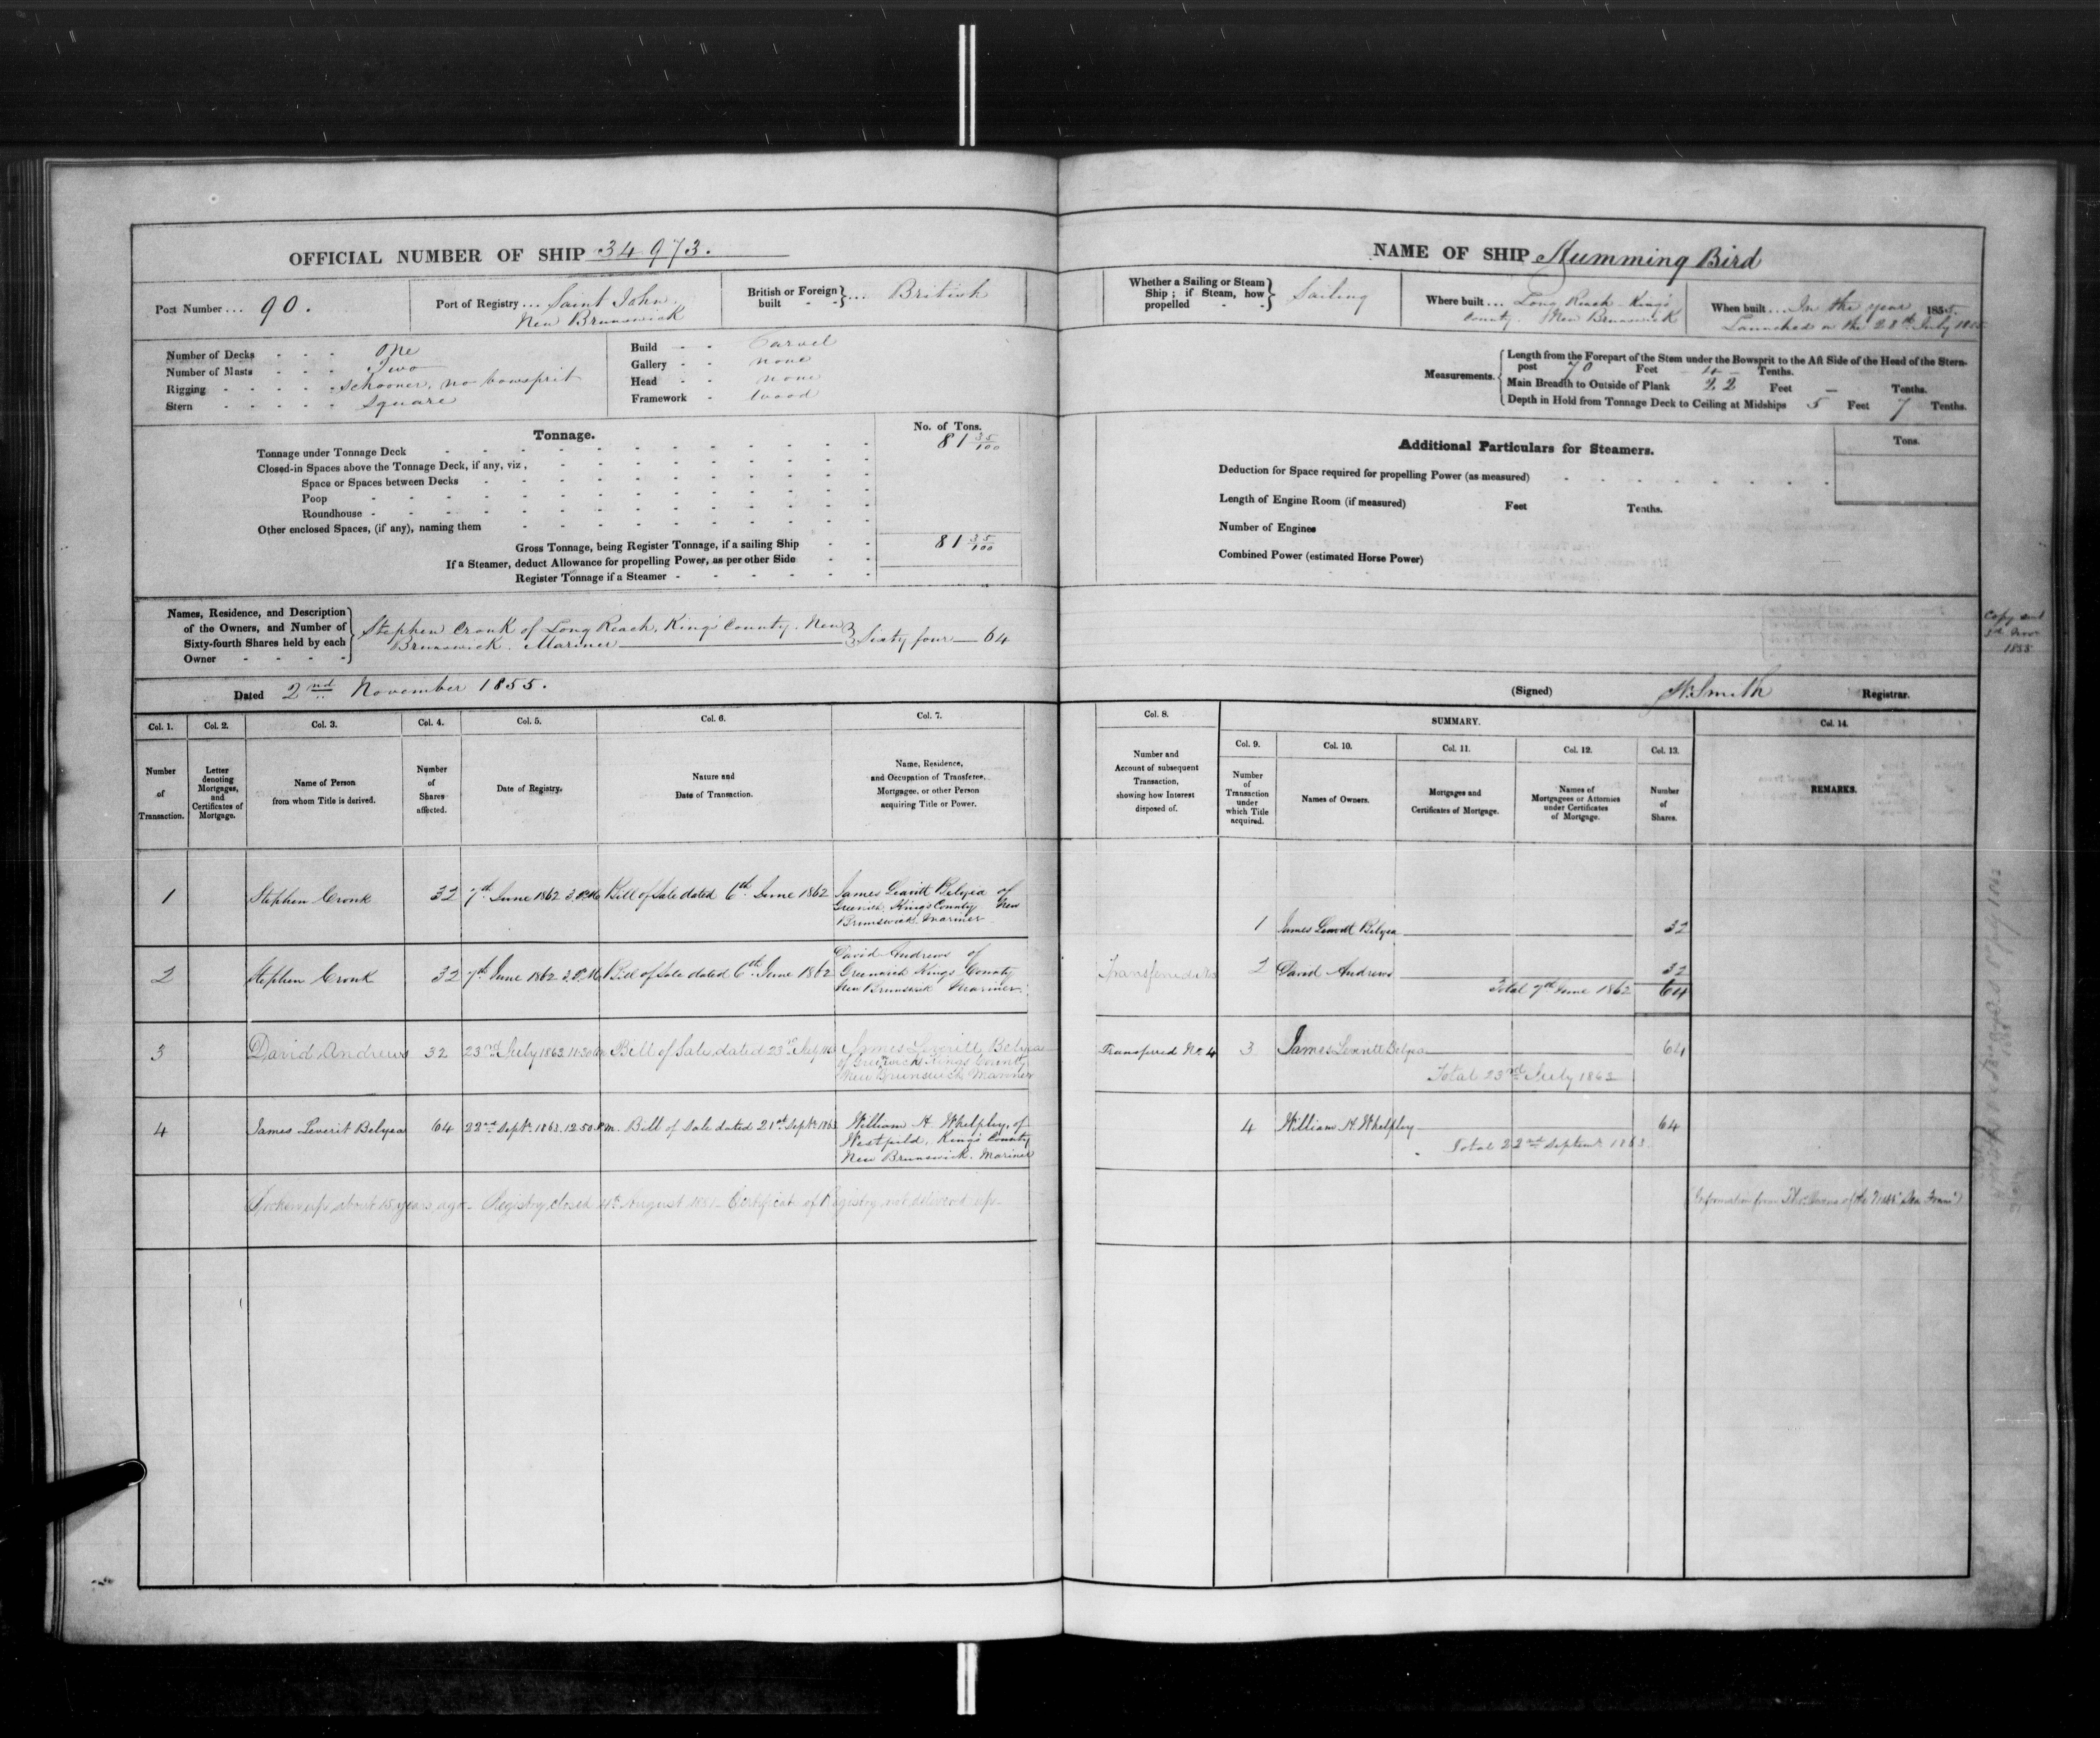 OFFICIAL NUMBER OF SHIP 34 973.
Port Number ... 90.
Port of Registry ... Saint John
New Brunswick
British or Foreign built ... British
Number of Decks One
Number of Masts Two
Rigging Schooner, no bowsprit
Stern Square
Build Carvel
Gallery none
Head none
Framework Wood
Tonnage.
No. of Tons.
Tonnage under Tonnage Deck 81 35/100
Closed-in Spaces above the Tonnage Deck, if any, viz,
Space or Spaces between Decks
Poop
Roundhouse
Other enclosed Spaces, (if any), naming them
Gross Tonnage, being Register Tonnage, if a sailing Ship 81 35/100
If a Steamer, deduct Allowance for propelling Power, as per other Side
Register Tonnage if a Steamer
Names, Residence, and Description
of the Owners, and Number of
Sixty-fourth Shares held by each
Owner
Stephen Cronk of Long Reach, King's County, New
Brunswick. Mariner
Sixty four — 64
Dated 2nd November 1855.
Col. 1. Col. 2. Col. 3. Col. 4. Col. 5. Col. 6. Col. 7.
Number of Transaction.
Letter denoting Mortgages, and Certificates of Mortgage.
Name of Person from whom Title is derived.
Number of Shares affected.
Date of Registry.
Nature and Date of Transaction.
Name, Residence, and Occupation of Transferee, Mortgagee, or other Person acquiring Title or Power.
1 Stephen Cronk 32 7th June 1862 3 P.M. Bill of Sale dated 6th June 1862 James Leavitt Belyea of
Greenwich, Kings County New
Brunswick, Mariner
2 Stephen Cronk 32 7th June 1862 3 P.M. Bill of Sale dated 6th June 1862 David Andrews of
Greenwich Kings County
New Brunswick Mariner.
3 David Andrews 32 23rd July 1862 11.30 Bill of Sale dated 23rd July James Leveritt Belyea
of Greenwich Kings County
New Brunswick Mariner
4 James Leverit Belyea 64 22nd Septr. 1863. 12.50 P.m. Bill of Sale dated 21st Septr. 1863 William H Whelpley, of
Westfield, King's County
New Brunswick. Mariner
Broken up about 15 years ago - Registry closed August 1881 - Certificate of Registry not delivered up.
NAME OF SHIP Humming Bird
Whether a Sailing or Steam
Ship; if Steam, how
propelled
Sailing
Where built ... Long Reach - King's
County. New Brunswick
When built ... In the year 1855.
Launched on the 28th July 1855
Measurements.
Length from the Forepart of the Stem under the Bowsprit to the Aft Side of the Head of the Stern-
post 70 Feet 4 Tenths.
Main Breadth to Outside of Plank 22 Feet — Tenths.
Depth in Hold from Tonnage Deck to Ceiling at Midships 5 Feet 7 Tenths.
Additional Particulars for Steamers.
Tons.
Deduction for Space required for propelling Power (as measured)
Length of Engine Room (if measured) Feet Tenths.
Number of Engines
Combined Power (estimated Horse Power)
Copy sent
3d Nov
1855
(Signed) Smith Registrar.
Col. 8. SUMMARY. Col. 14.
Col. 9. Col. 10. Col. 11. Col. 12. Col. 13.
Number and Account of subsequent Transaction, showing how Interest disposed of.
Number of Transaction under which Title acquired.
Names of Owners.
Mortgages and Certificates of Mortgage.
Names of Mortgagees or Attornies under Certificates of Mortgage.
Number of Shares.
REMARKS.
1 James Leavitt Belyea 32
Transferred No 2 David Andrews 32
Total 7th June 1862 64
Transferred No. 4 3 James Leveritt Belyea 64
Total 23rd July 1862
4 William H. Whelpley 64
Total 22nd Septemr 1863.
(Information from of the